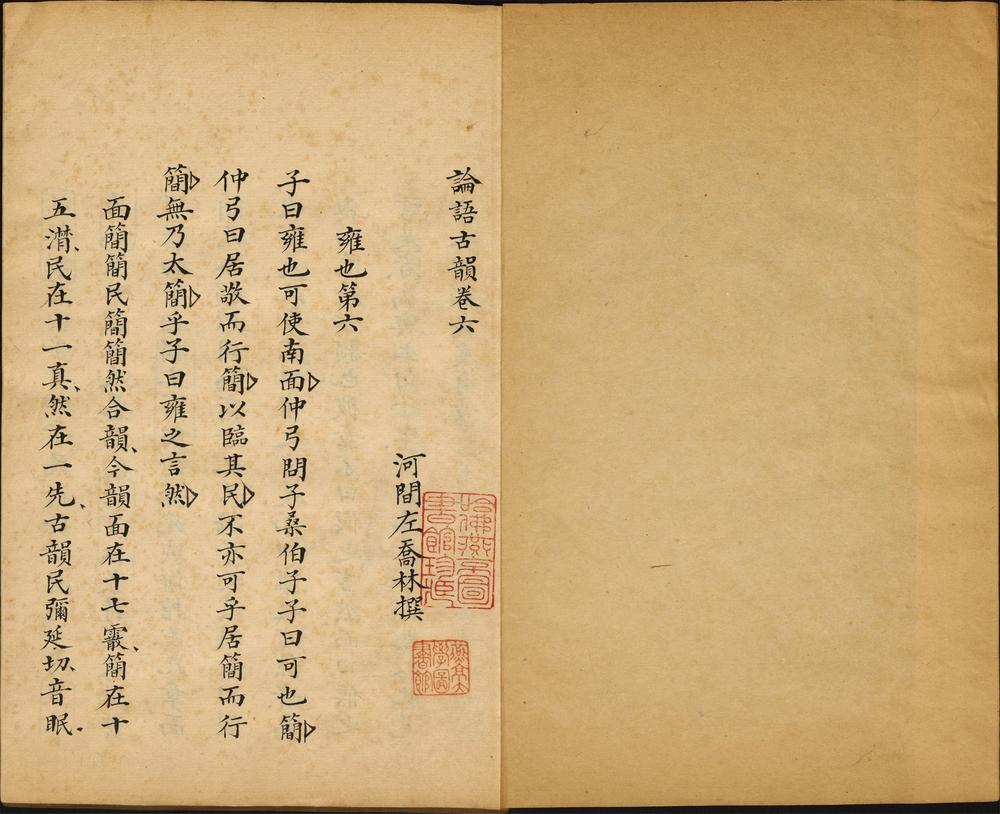 論語古韻卷六
河間左喬林撰
雍也第六
子曰雍也可使南面仲弓問子桑伯子子曰可也簡
仲弓曰居敬而行簡以臨其民不亦可乎居簡而行
簡無乃太簡乎子曰雍之言然
面簡簡民簡簡然合韻、今韻面在十七霰、簡在十
五潸、民在十一真、然在一先、古韻民彌延切、音眠.
哈佛燕京圖書館珍藏
燕京大學圖書館